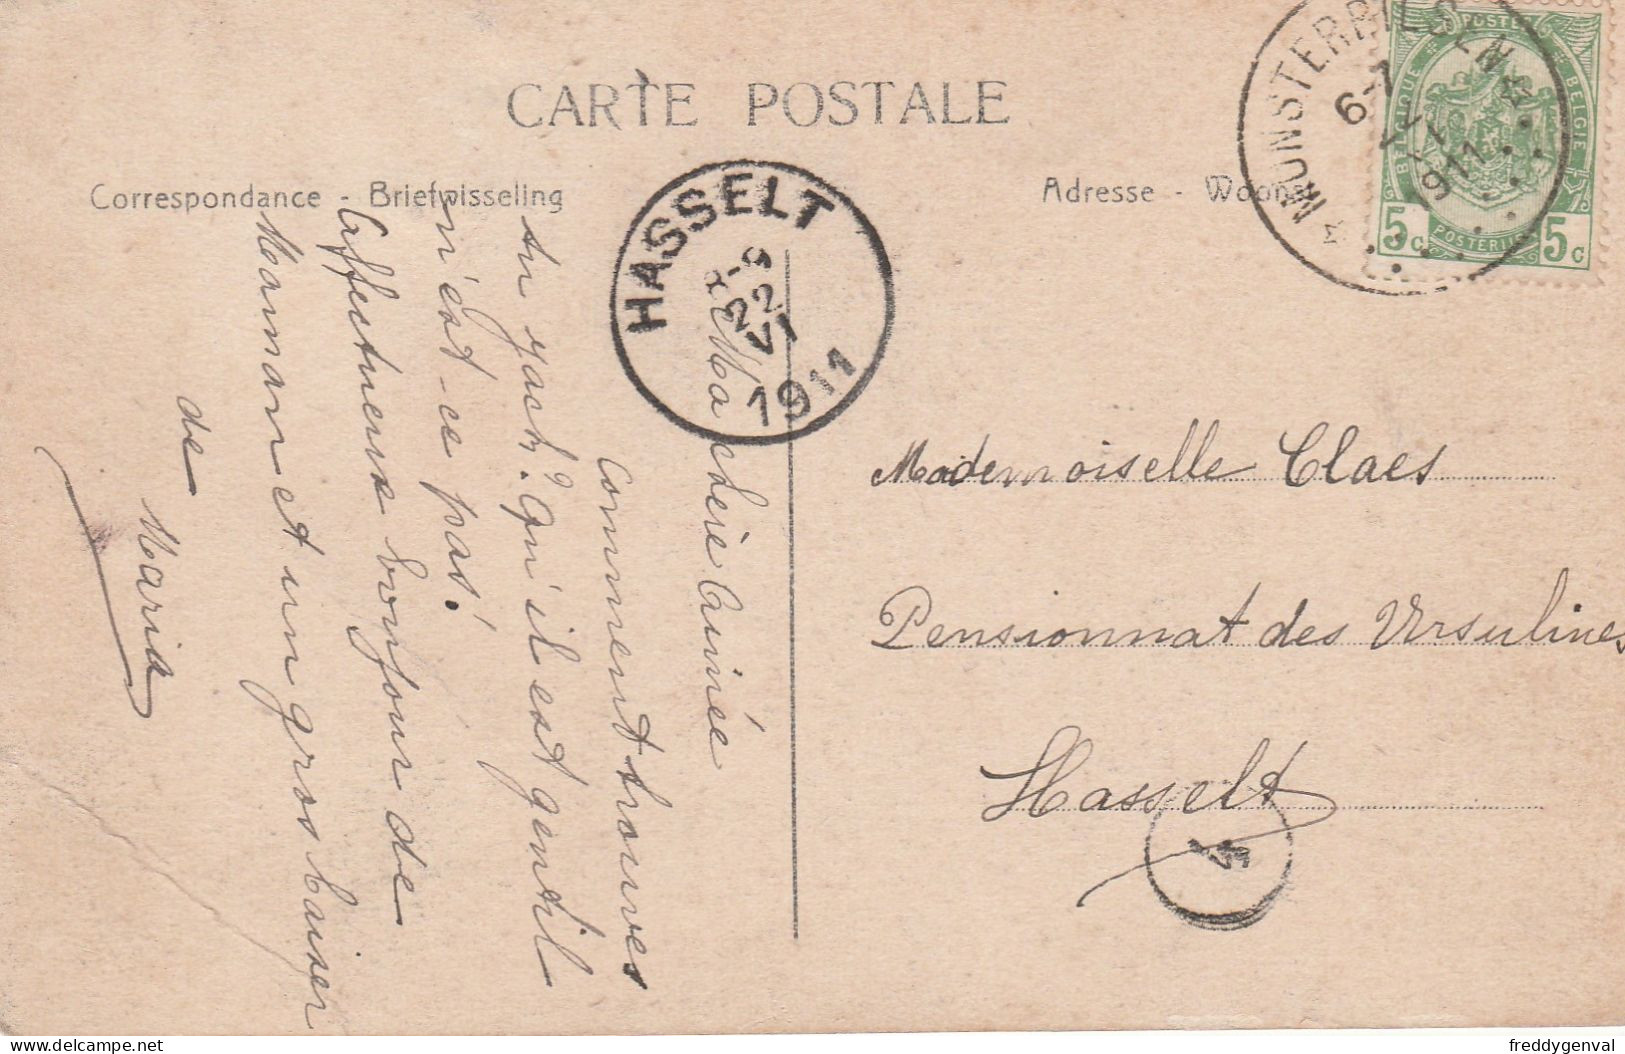 CARTE POSTALE
Correspondance - Briefwisseling
Adresse - Woonst
MUNSTERBILSEN
6-7
22
VI
1911
POSTERIJEN
BELGIQUE
BELGIE
5c
5c
HASSELT
8-9
22
VI
1911
Ma chère Aimée
Comment trouves
tu yach? Qu'il est gentil
n'est-ce pas!
Affectueux bonjour de
Maman et un gros baiser
de
Maria
Mademoiselle Claes
Pensionnat des Ursulines
Hasselt
4
freddygenval